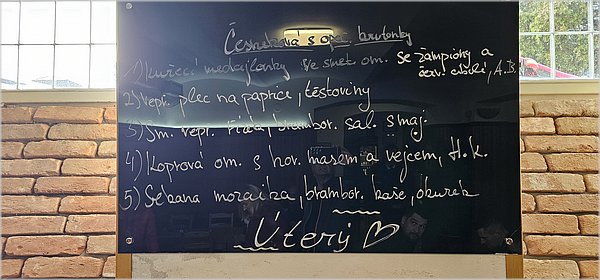 Česneková s opeč. brutonky
1) Kuřecí medajlonky ve smet. om. se žampiony a červ. cibulí, A.B.
2) vepř. plec na paprice, těstoviny
3) Sm. vepř. řízek, brambor. sal. s maj.
4) Koprová om. s hov. masem a vejcem, H.k.
5) Sekaná mozaika, brambor. kaše, okurek
Úterý